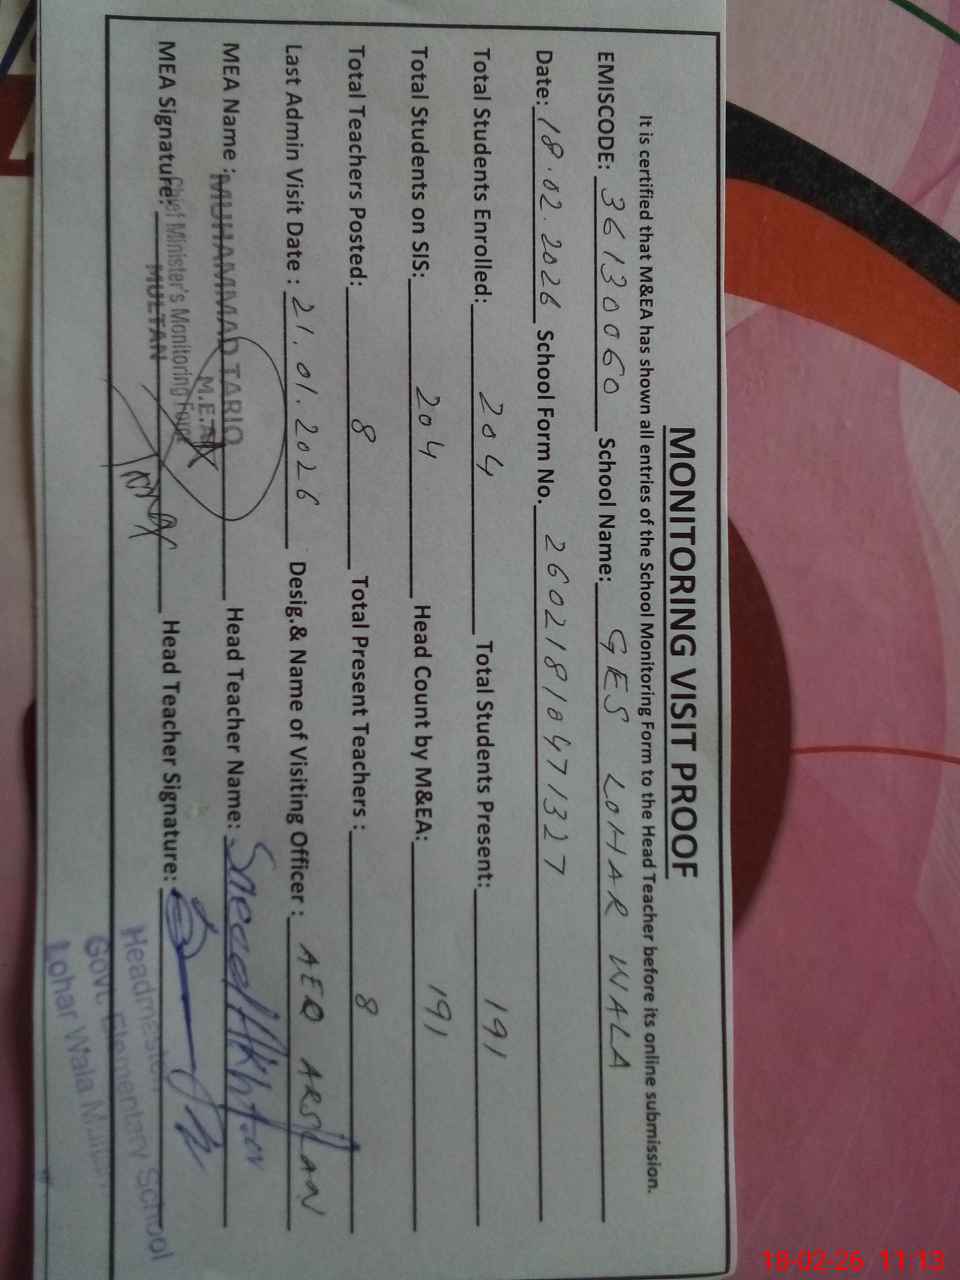 MONITORING VISIT PROOF
It is certified that M&EA has shown all entries of the School Monitoring Form to the Head Teacher before its online submission.
EMISCODE: 36130060 School Name: GES LOHAR WALA
Date: 18.02.2026 School Form No. 26021810471327
Total Students Enrolled: 204 Total Students Present: 191
Total Students on SIS: 204 Head Count by M&EA: 191
Total Teachers Posted: 8 Total Present Teachers : 8
Last Admin Visit Date : 21.01.2026 Desig.& Name of Visiting Officer : AEO ARSLAN
MEA Name : MUHAMMAD TARIQ Head Teacher Name: Saeed Akhtar
M.E.A
Chief Minister's Monitoring Force
MULTAN
MEA Signature: Head Teacher Signature:
Headmaster
Govt. Elementary School
Lohar Wala Multan
18-02-26 11:13